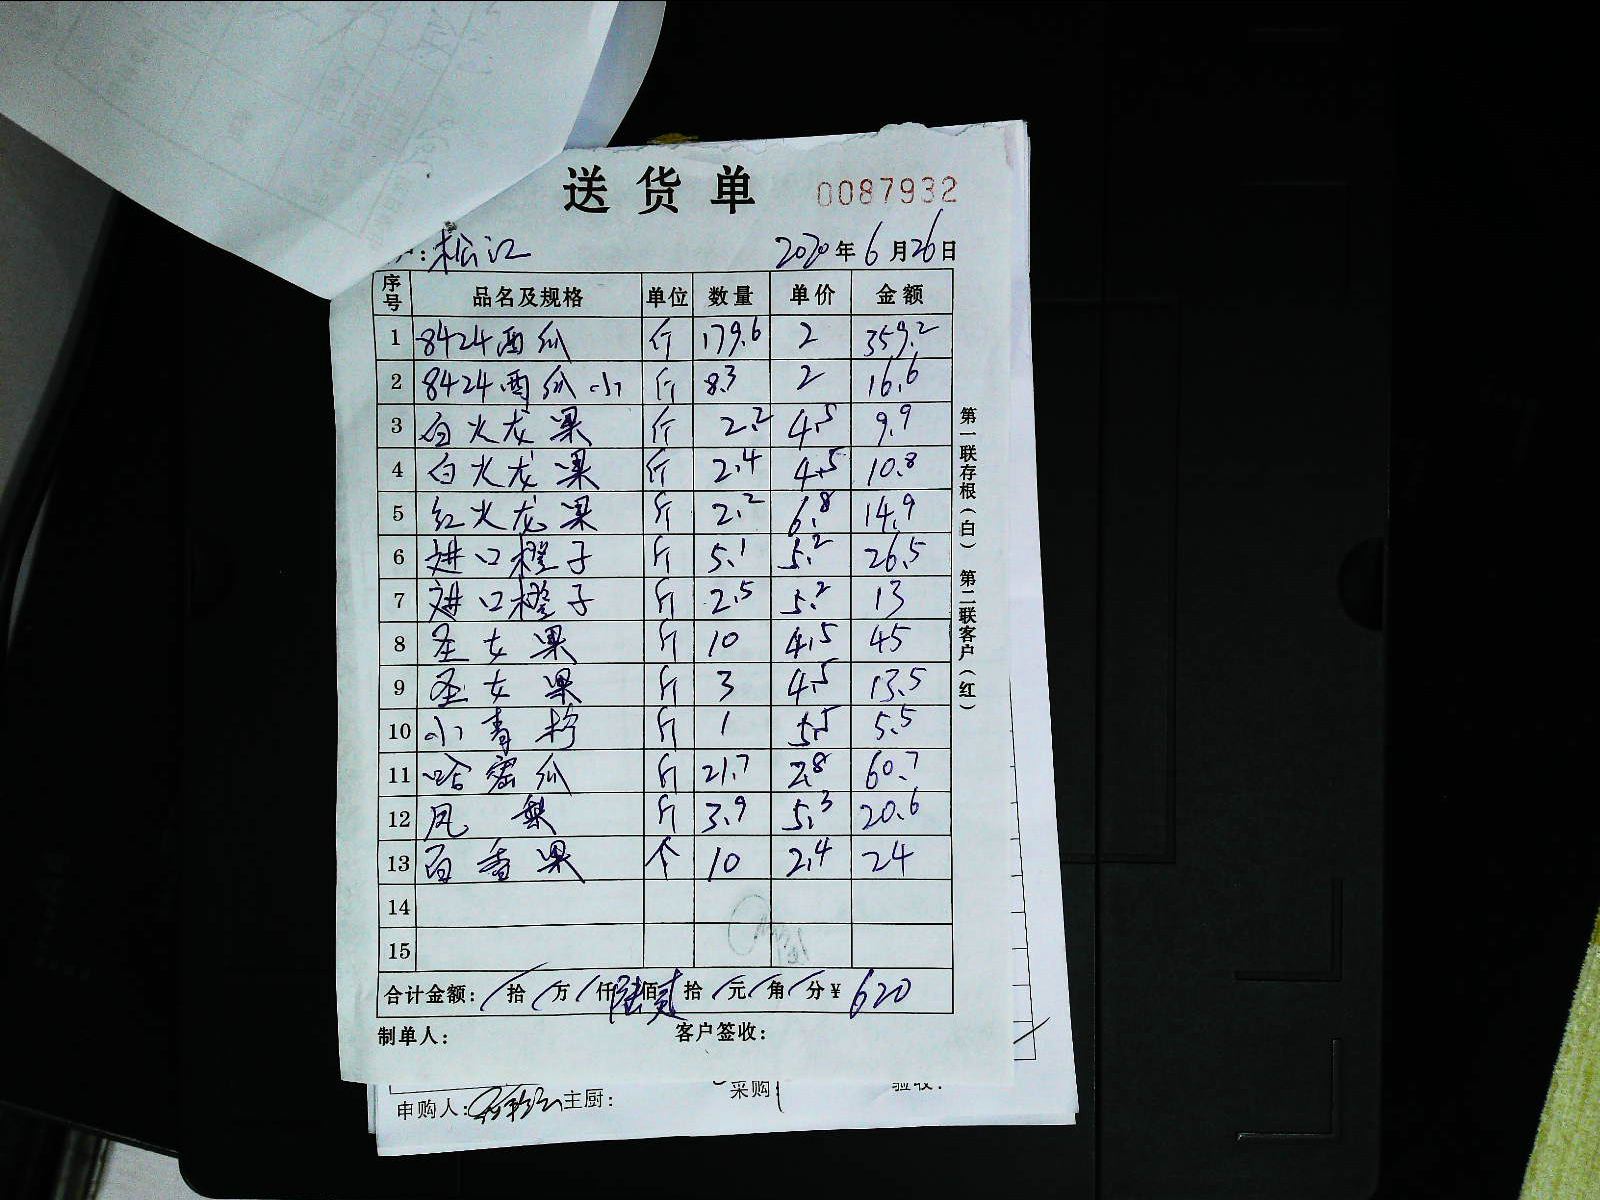 送货单 0087932
户:松江 2020年6月26日
序号 品名及规格 单位 数量 单价 金额
1 8424西瓜 斤 179.6 2 359.2
2 8424西瓜小 斤 8.3 2 16.6
3 白火龙果 斤 2.2 4.5 9.9
4 白火龙果 斤 2.4 4.5 10.8
5 红火龙果 斤 2.2 6.8 14.9
6 进口橙子 斤 5.1 5.2 26.5
7 进口橙子 斤 2.5 5.2 13
8 圣女果 斤 10 4.5 45
9 圣女果 斤 3 4.5 13.5
10 小青柠 斤 1 5.5 5.5
11 哈密瓜 斤 21.7 2.8 60.7
12 凤梨 斤 3.9 5.3 20.6
13 百香果 个 10 2.4 24
14
15
合计金额: / 拾 / 万 / 仟 陆 佰 贰 拾 / 元 / 角 / 分 ¥ 620
制单人: 客户签收:
第一联存根(白) 第二联客户(红)
申购人: 主厨: 采购 验收: